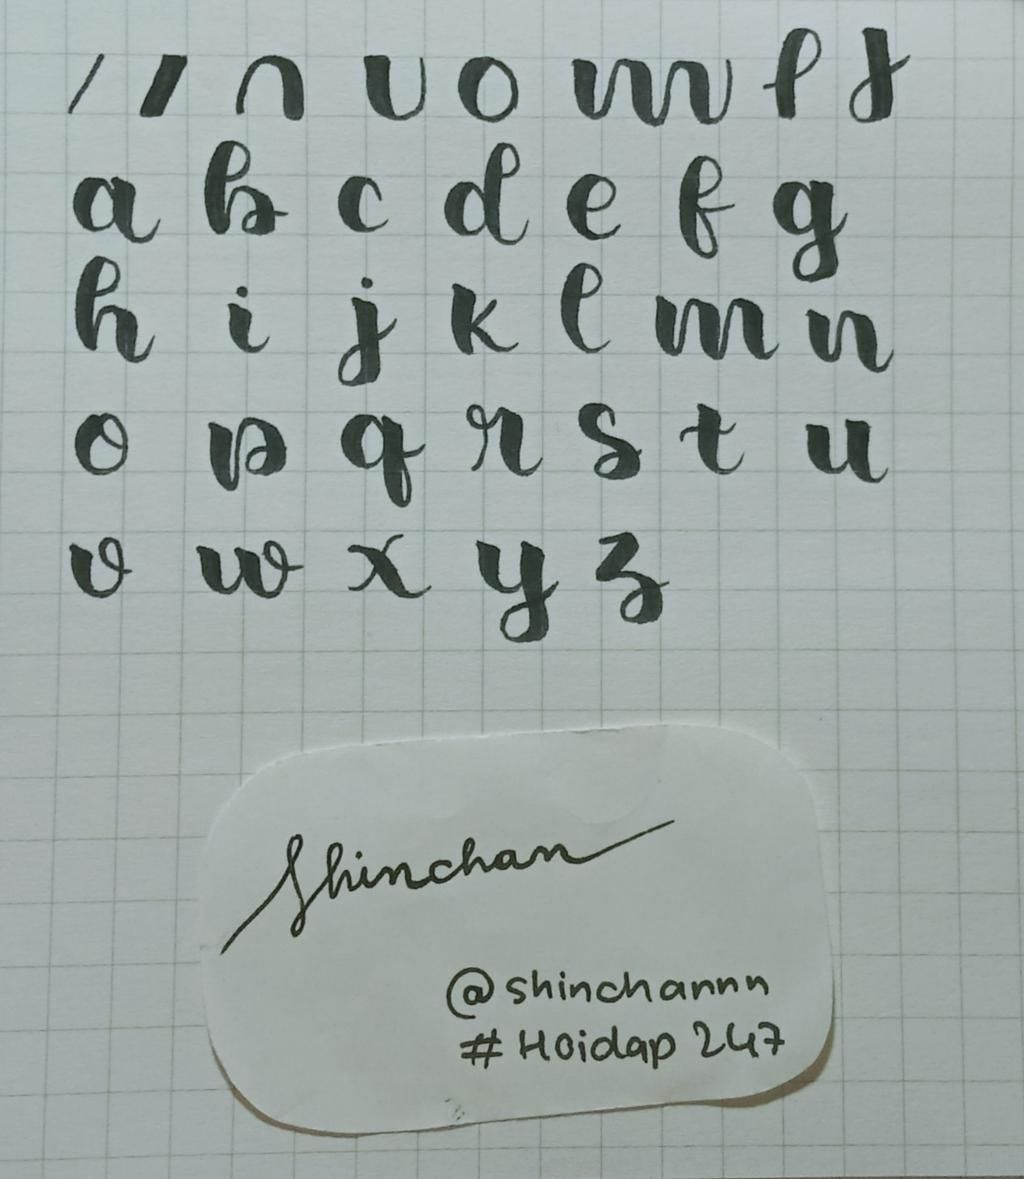 a b c d e f g
h i j k l m n
o p q r s t u
v w x y z
Shinchan
@shinchannn
#Hoidap 247